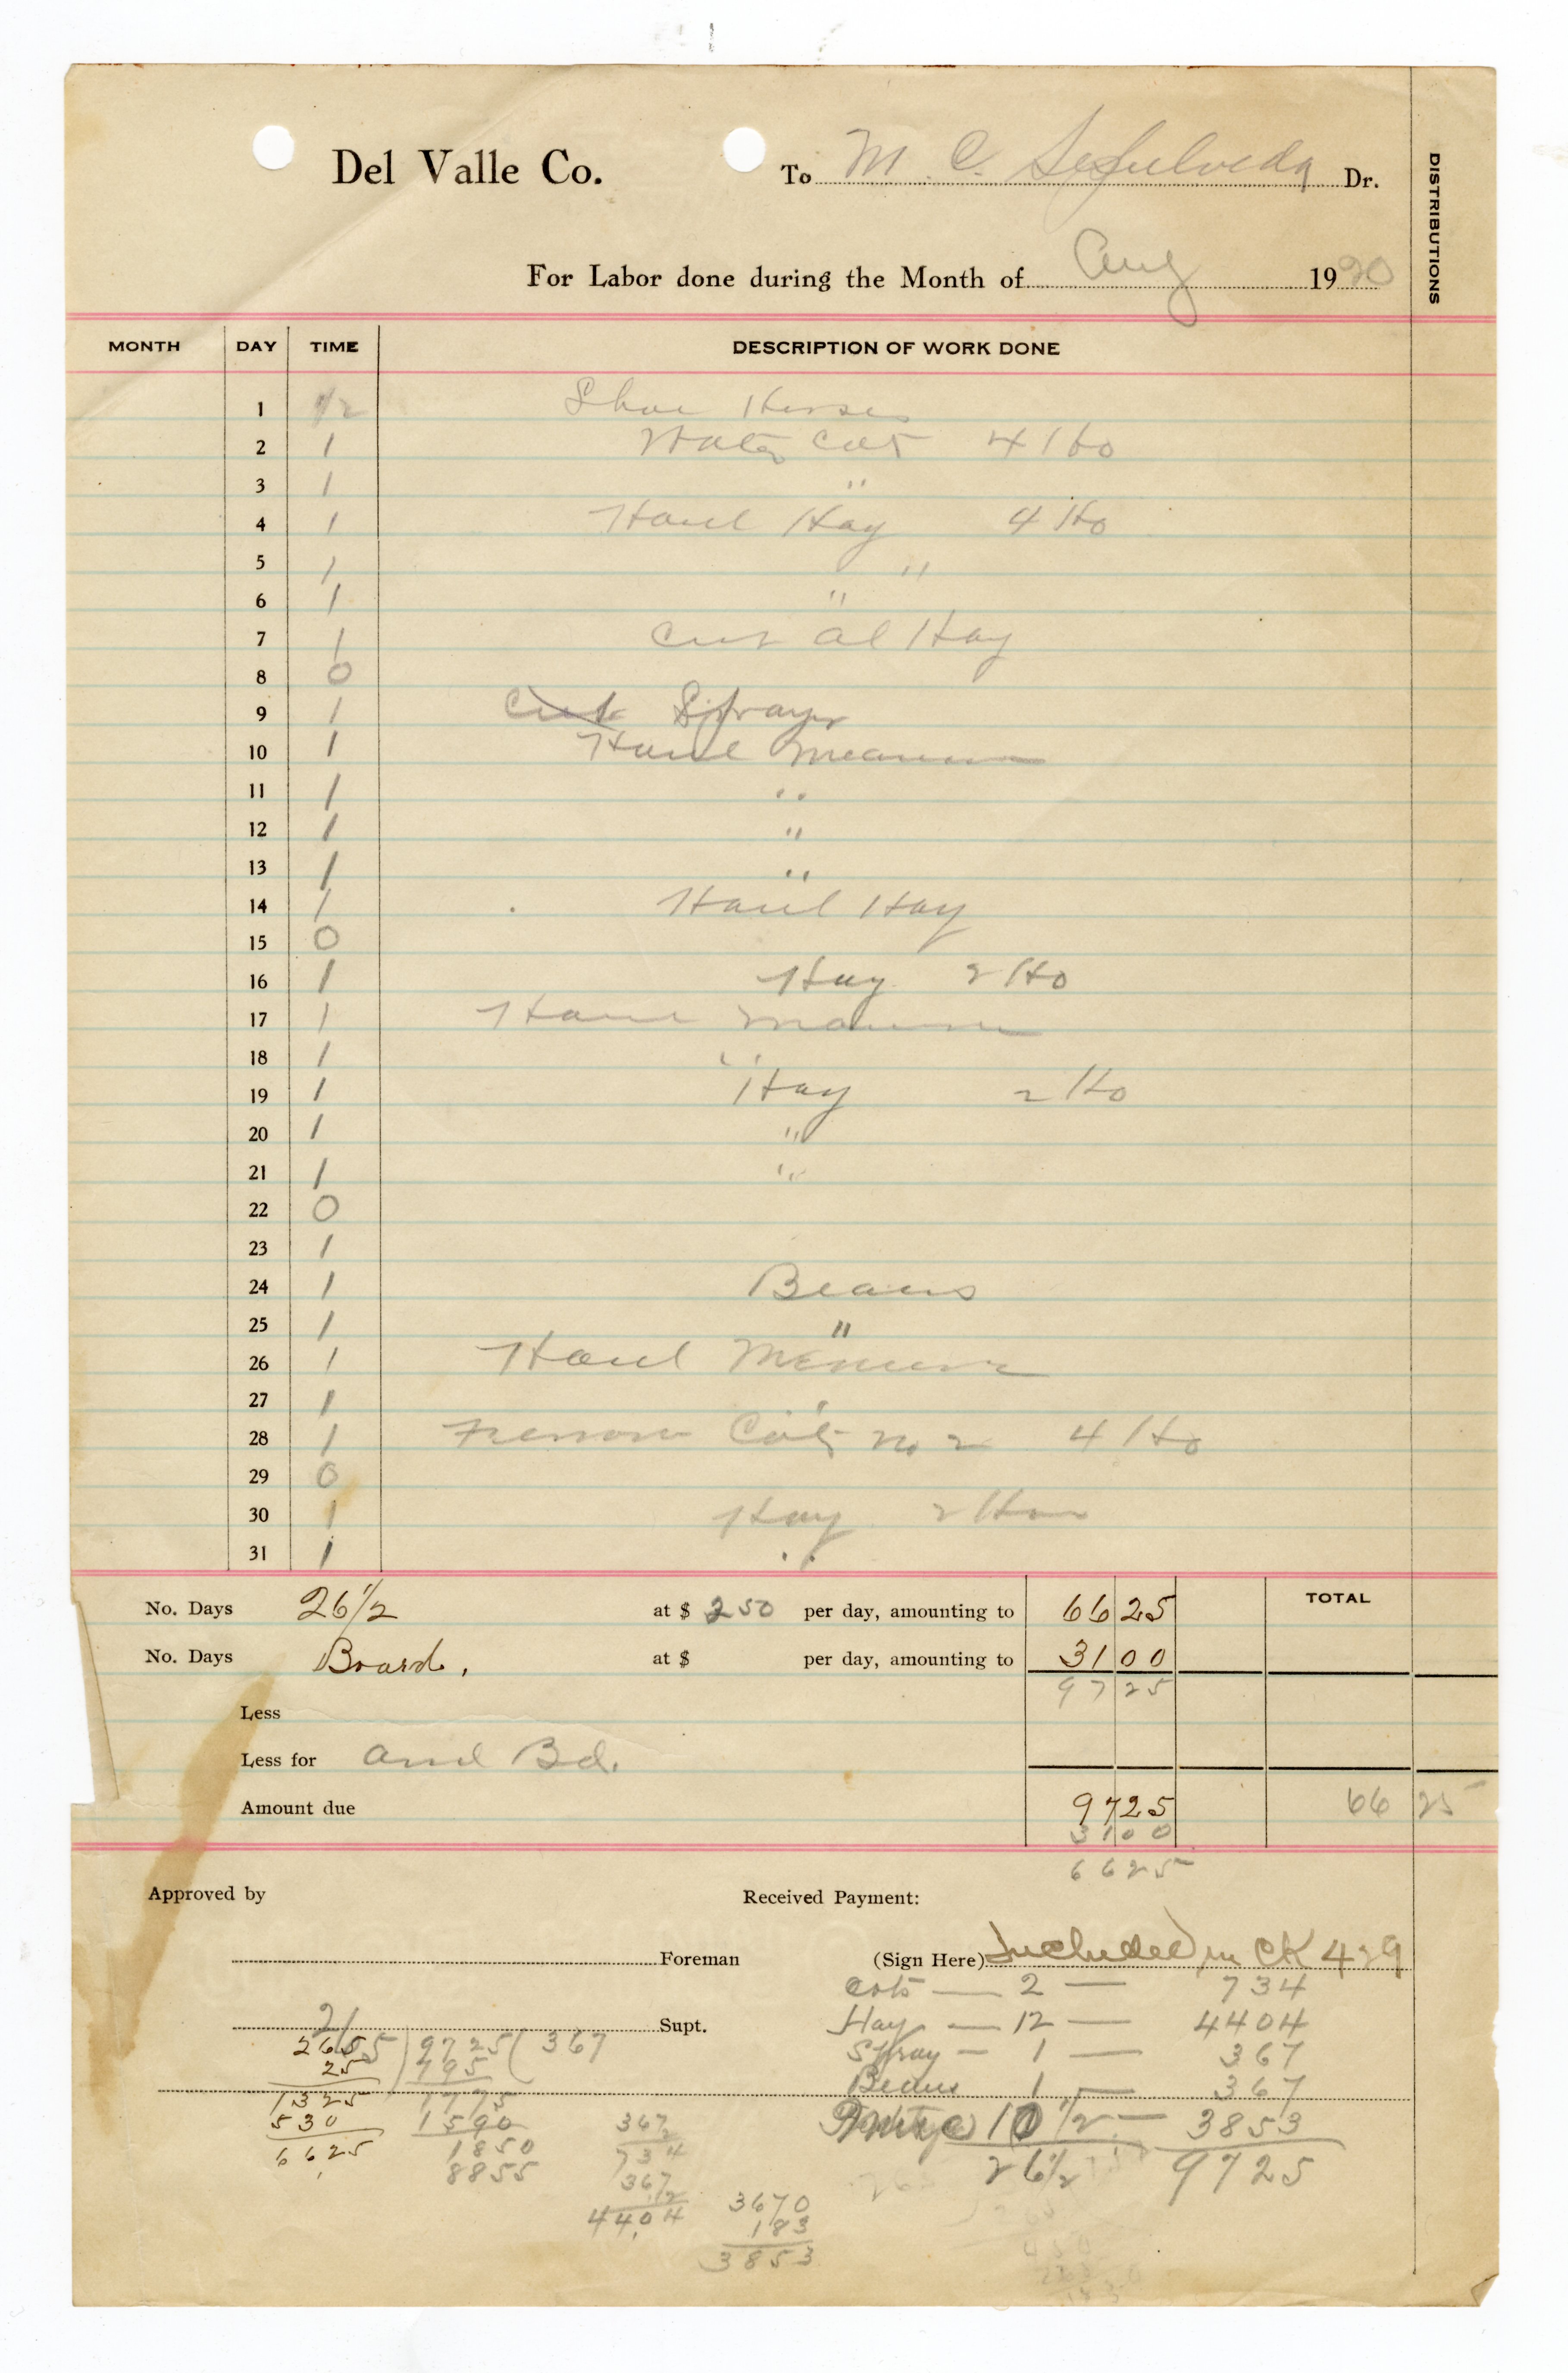 Del Valle Co. To M. C. Sepulveda Dr.
DISTRIBUTIONS
For Labor done during the Month of Aug 1920
MONTH DAY TIME DESCRIPTION OF WORK DONE
1 1/2 Shoe Horses
2 1 Water Cots 4 Ho
3 1 "
4 1 Haul Hay 4 Ho
5 1 "
6 1 "
7 1 Cut al Hay
8 0
9 1 Cut Spray
10 1 Haul
11 1 "
12 1 "
13 1 "
14 1 Haul Hay
15 0
16 1 Hay 2 Ho
17 1 Haul
18 1 "
19 1 Hay 2 Ho
20 1 "
21 1 "
22 0
23 1
24 1 Beans
25 1 "
26 1 Haul
27 1 "
28 1 Cots No 2 4 Ho
29 0
30 1 Hay 2 Hor
31 1 "
No. Days 26 1/2 at $ 2 50 per day, amounting to 66 25 TOTAL
No. Days Board. at $ per day, amounting to 31 00
97 25
Less
Less for and Bd.
Amount due 97 25 66 25
31 00
66 25
Approved by Received Payment:
Foreman (Sign Here) Included in CK 429
Cots — 2 — 734
Supt. Hay — 12 — 4404
Spray — 1 — 367
Beans 1 — 367
10 1/2 — 3853
26 1/2 9725
265 ) 9725 ( 367
25 795
1325 1775
530 1590
6625 1850
8855
367
2
734
367
12
4404
3670
183
3853